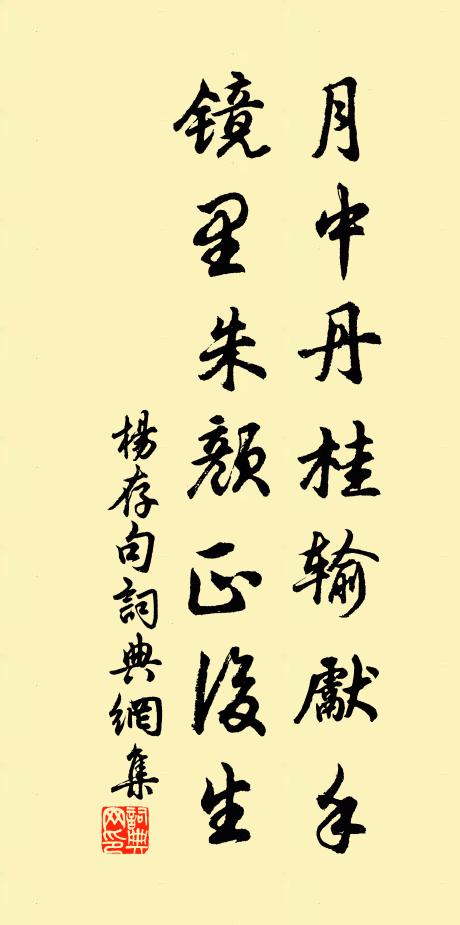 月中丹桂输獻手
镜里朱颜正後生
楊存句詞典網集
詞典网印